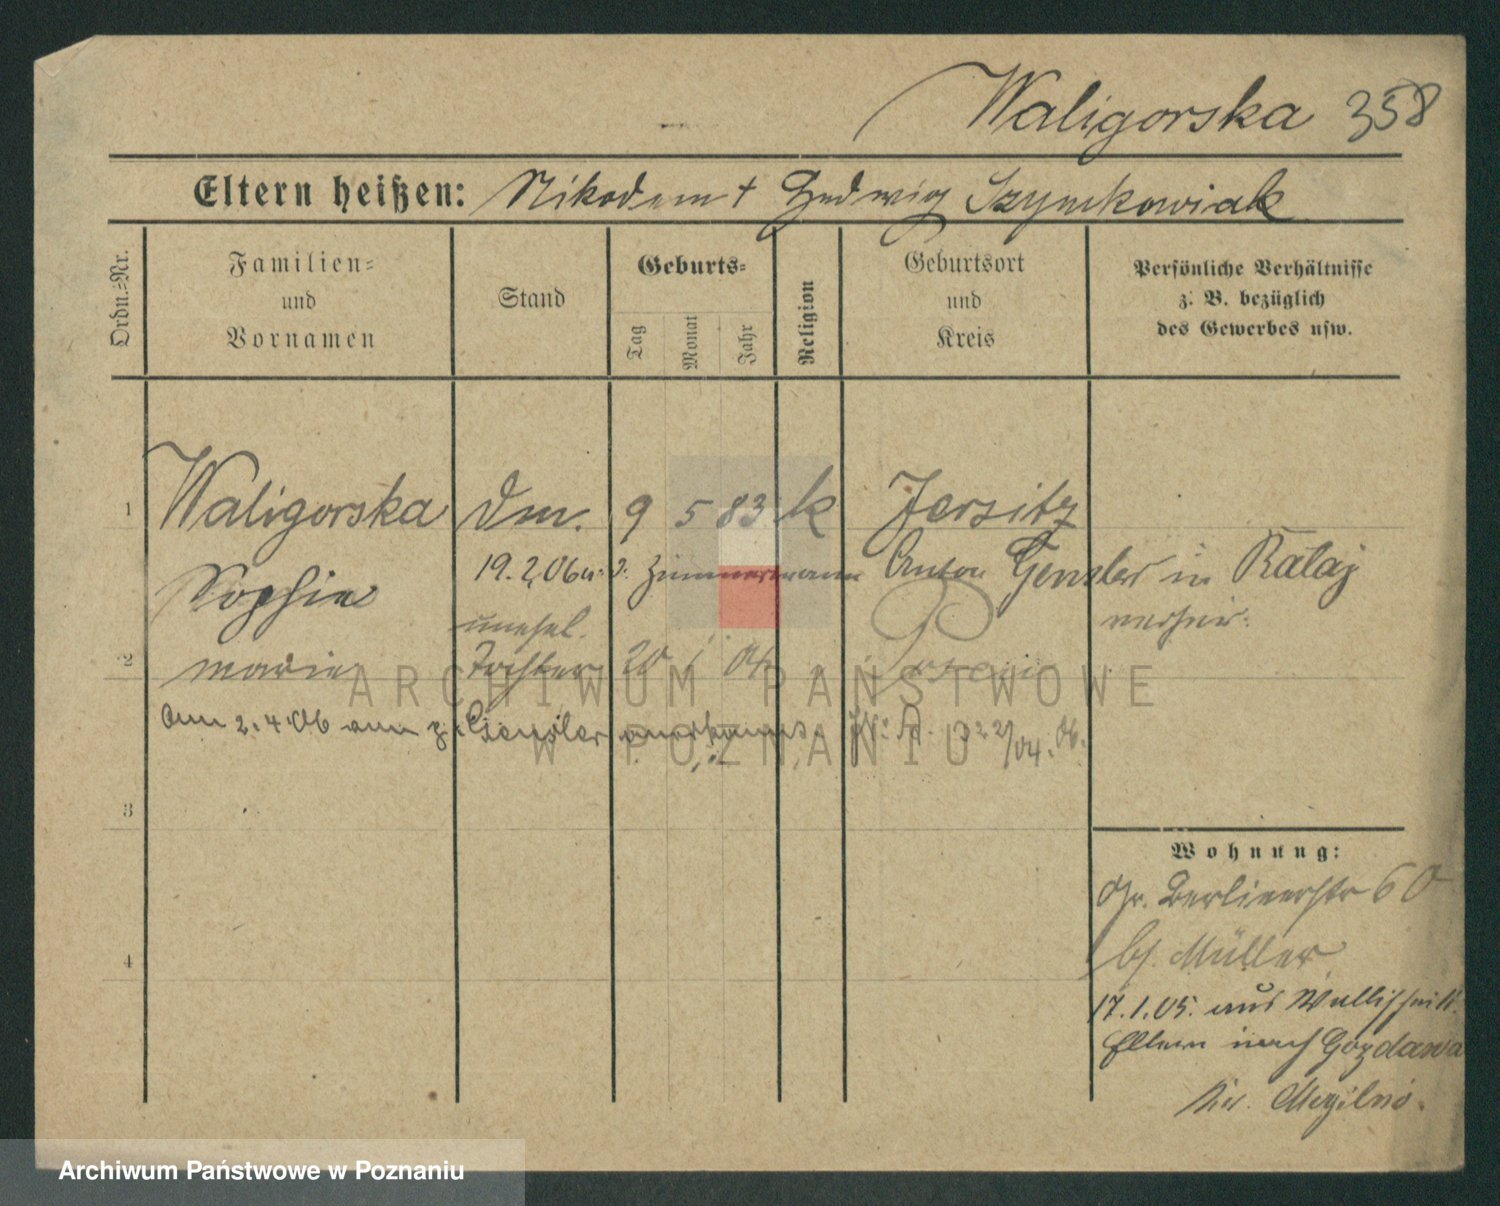 Waligorska 358
Eltern heißen: Nikodem + Hedwig Szymkowiak
Ordn.-Nr.
Familien-
und
Vornamen
Stand
Geburts-
Tag
Monat
Jahr
Religion
Geburtsort
und
Kreis
Persönliche Verhältnisse
z. B. bezüglich
des Gewerbes usw.
1 Waligorska Dm. 9 5 83 k Jersitz
19.2.06 Zimmermann Anton Genzler in Rataj
Sophie
unehel. verheir.
2 Marie Tochter 20 1 06 Posen
Am 2.4.06 Genzler anerkannt. 04. 06.
3
4
Wohnung:
Gr. Berlinerstr 60
bf. Müller
17.1.05. aus Wallischei
Eltern nach Gozdawa
Kr. Mogilno.
ARCHIWUM PAŃSTWOWE
W POZNANIU
Archiwum Państwowe w Poznaniu